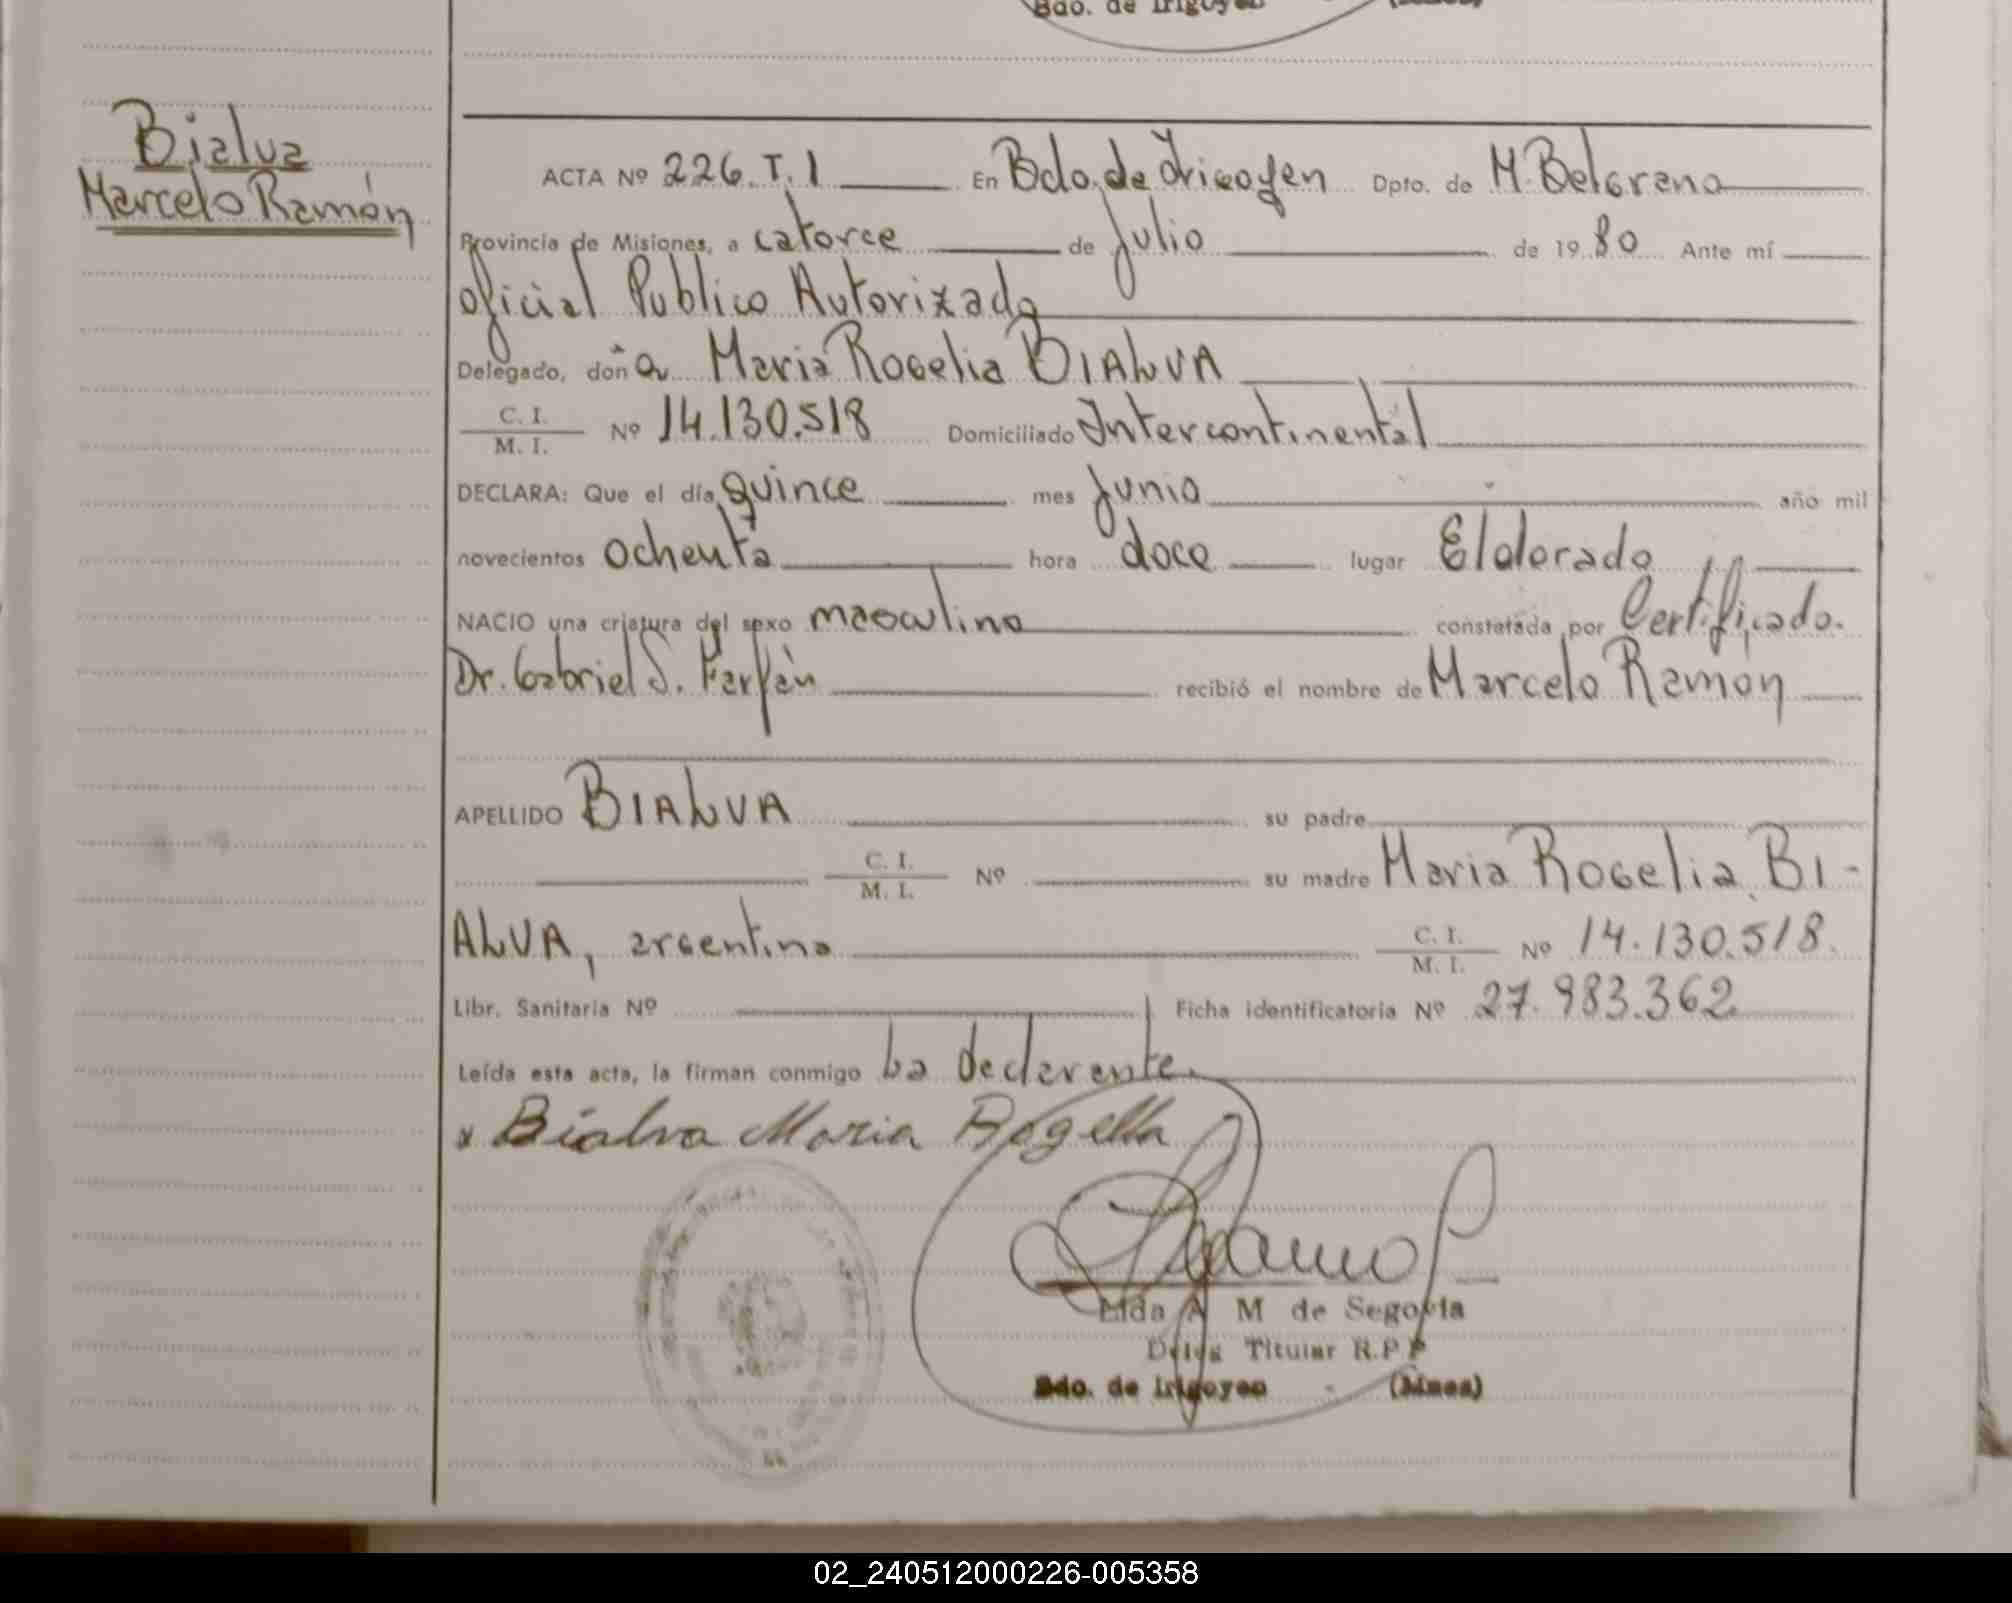 Bdo. de Irigoyen (Mnes)
Bialva
Marcelo Ramón
ACTA Nº 226.T.1 En Bdo. de Irigoyen Dpto. de M. Belgrano
Provincia de Misiones, a catorce de Julio de 1980 Ante mí
oficial Publico Autorizado
Delegado, doña Maria Rogelia BIALVA
C. I.
M. I. Nº 14.130.518 Domiciliado Intercontinental
DECLARA: Que el día quince mes Junio año mil
novecientos ochenta hora doce lugar Eldorado
NACIO una criatura del sexo masculino constatada por Certificado.
Dr. Gabriel S. Farfán recibió el nombre de Marcelo Ramón
APELLIDO BIALVA su padre
C. I.
M. I. Nº su madre Maria Rogelia BI-
ALVA, argentina C. I.
M. I. Nº 14.130.518.
Libr. Sanitaria Nº Ficha identificatoria Nº 27.983.362
Leída esta acta, la firman conmigo La declarante.
x Bialva Maria Rogelia
Elda A M de Segovia
Deleg Titular R.P.P
Bdo. de Irigoyen - (Mnes)
02_240512000226-005358